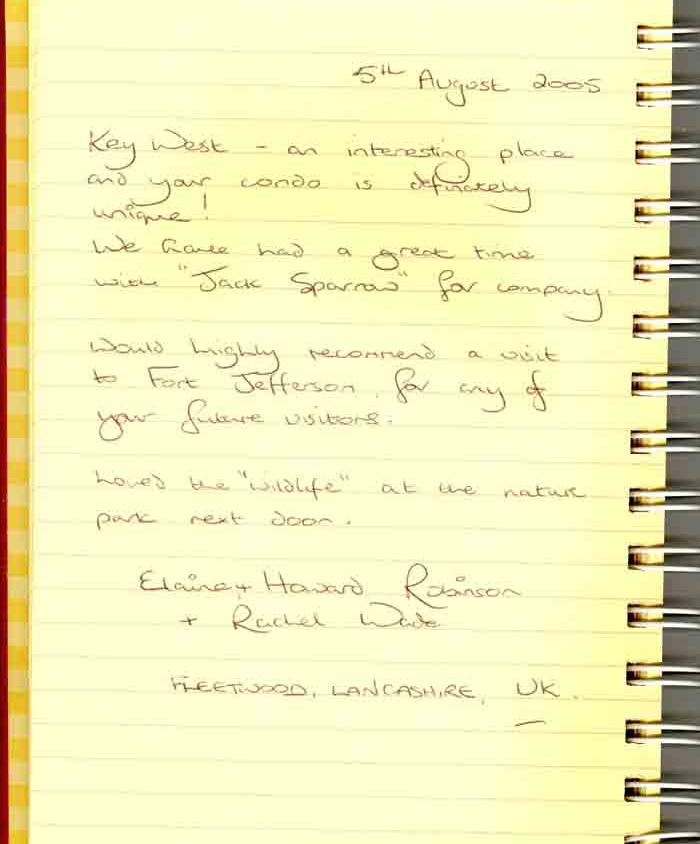 5th August 2005
Key West - an interesting place
and your condo is definately
unique!
We have had a great time
with "Jack Sparrow" for company.
Would highly recommend a visit
to Fort Jefferson, for any of
your future visitors.
Loved the "wildlife" at the nature
park next door.
Elaine + Howard Robinson
+ Rachel Wade
FLEETWOOD, LANCASHIRE, UK.